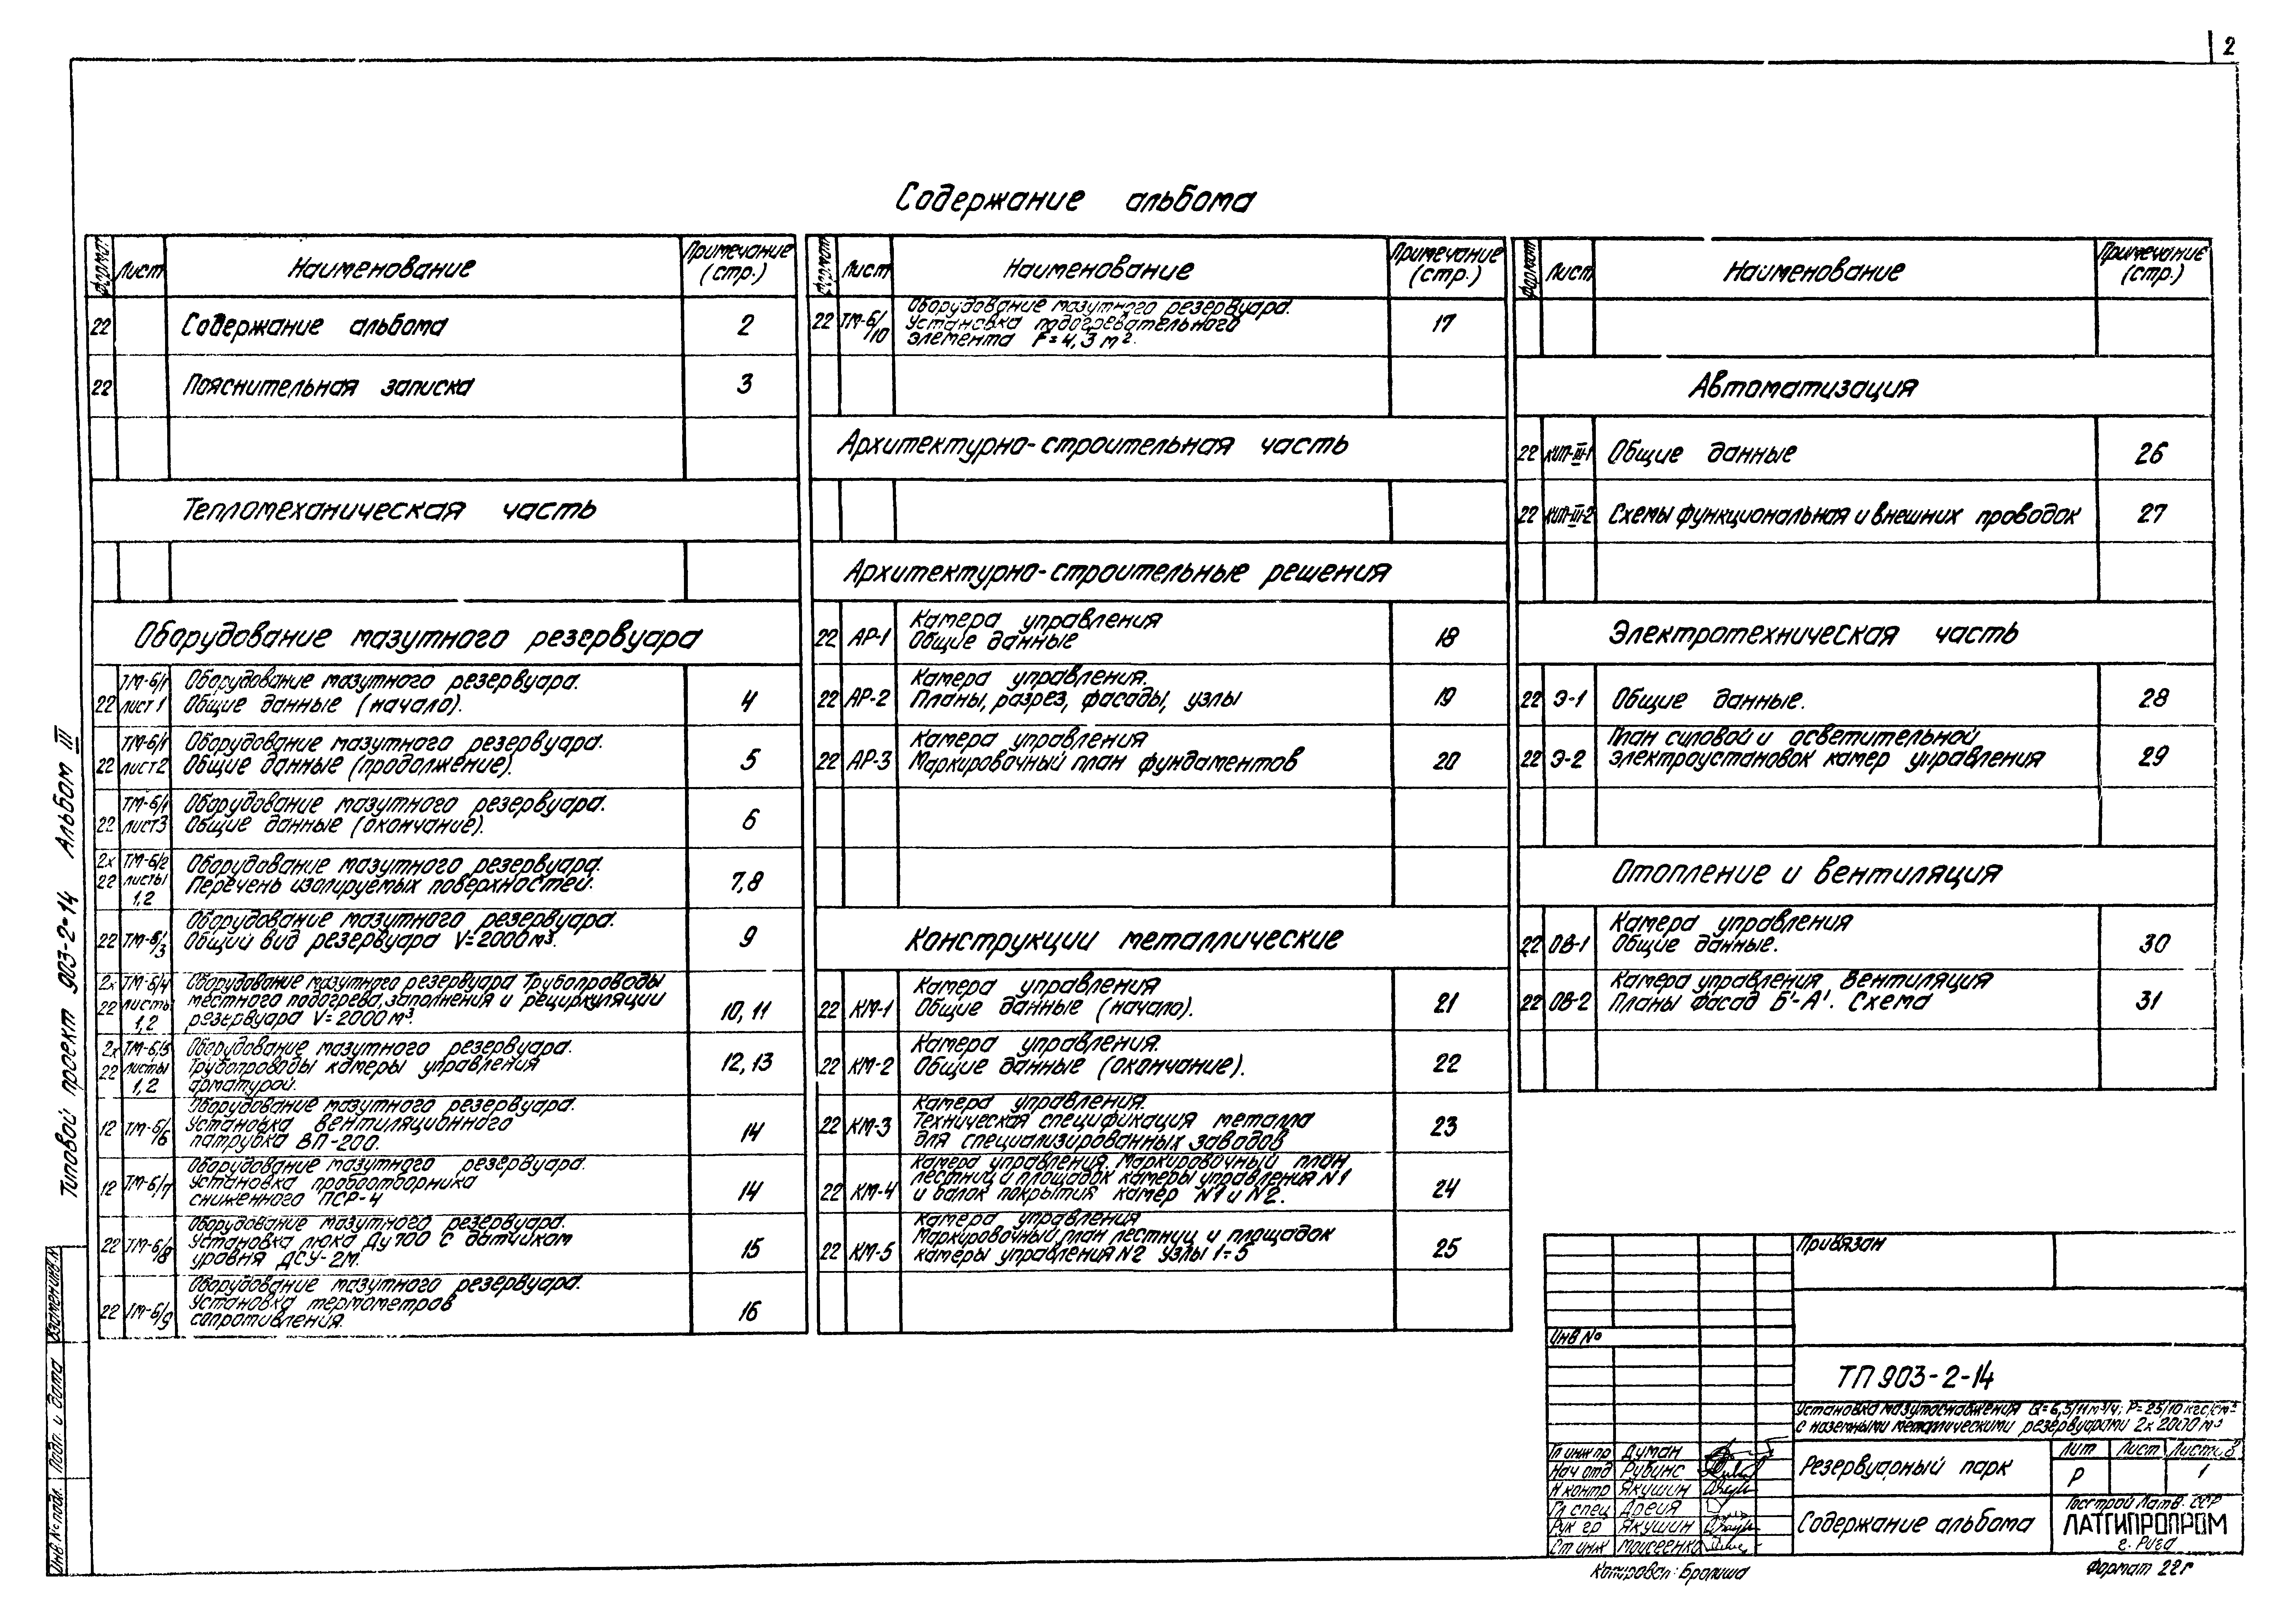 2
Содержание альбома
Формат Лист Наименование Примечание (стр.)
22 Содержание альбома 2
22 Пояснительная записка 3
Тепломеханическая часть
Оборудование мазутного резервуара
22 ТМ-6/1 лист 1 Оборудование мазутного резервуара.
Общие данные (начало). 4
22 ТМ-6/1 лист 2 Оборудование мазутного резервуара.
Общие данные (продолжение). 5
22 ТМ-6/1 лист 3 Оборудование мазутного резервуара.
Общие данные (окончание). 6
2х22 ТМ-6/2 листы 1,2 Оборудование мазутного резервуара.
Перечень изолируемых поверхностей. 7,8
22 ТМ-6/3 Оборудование мазутного резервуара.
Общий вид резервуара V=2000м³. 9
2х22 ТМ-6/4 листы 1,2 Оборудование мазутного резервуара Трубопроводы
местного подогрева, заполнения и рециркуляции
резервуара V=2000м³. 10, 11
2х22 ТМ-6/5 листы 1,2 Оборудование мазутного резервуара.
Трубопроводы камеры управления
арматурой. 12, 13
12 ТМ-6/6 Оборудование мазутного резервуара.
Установка вентиляционного
патрубка ВП-200. 14
12 ТМ-6/7 Оборудование мазутного резервуара.
Установка пробоотборника
сниженного ПСР-4 14
22 ТМ-6/8 Оборудование мазутного резервуара.
Установка люка Ду 700 с датчиком
уровня ДСУ-2М. 15
22 ТМ-6/9 Оборудование мазутного резервуара.
Установка термометров
сопротивления. 16
Формат Лист Наименование Примечание (стр.)
22 ТМ-6/10 Оборудование мазутного резервуара.
Установка подогревательного
элемента F=4,3 м². 17
Архитектурно-строительная часть
Архитектурно-строительные решения
22 АР-1 Камера управления
Общие данные 18
22 АР-2 Камера управления.
Планы, разрез, фасады, узлы 19
22 АР-3 Камера управления
Маркировочный план фундаментов 20
Конструкции металлические
22 КМ-1 Камера управления
Общие данные (начало). 21
22 КМ-2 Камера управления.
Общие данные (окончание). 22
22 КМ-3 Камера управления.
Техническая спецификация металла
для специализированных заводов 23
22 КМ-4 Камера управления. Маркировочный план
лестниц и площадок камеры управления N1
и балок покрытия камер N1 и N2. 24
22 КМ-5 Камера управления
Маркировочный план лестниц и площадок
камеры управления N2 Узлы 1÷5 25
Формат Лист Наименование Примечание (стр.)
Автоматизация
22 КИП-III-1 Общие данные 26
22 КИП-III-2 Схемы функциональная и внешних проводок 27
Электротехническая часть
22 Э-1 Общие данные. 28
22 Э-2 План силовой и осветительной
электроустановок камер управления 29
Отопление и вентиляция
22 ОВ-1 Камера управления
Общие данные. 30
22 ОВ-2 Камера управления Вентиляция
Планы Фасад Б'-А'. Схема 31
Типовой проект 903-2-14 Альбом III
Инв № подл. Подп. и дата Взамен инв N
Привязан
Инв №
ТП 903-2-14
Установка мазутоснабжения Q=6,5/11 м³/ч; Р=25/10 кгс/см²
с наземными металлическими резервуарами 2х2000 м³
Гл инж пр Думан
Нач отд Рубинс
Н контр Якушин
Гл спец Дрейя
Рук гр Якушин
Ст инж Моисеенко
Резервуарный парк
Лит Лист Листов
Р 1
Содержание альбома
Госстрой Латв. ССР
ЛАТГИПРОПРОМ
г. Рига
Копировал: Бролиша
Формат 22г